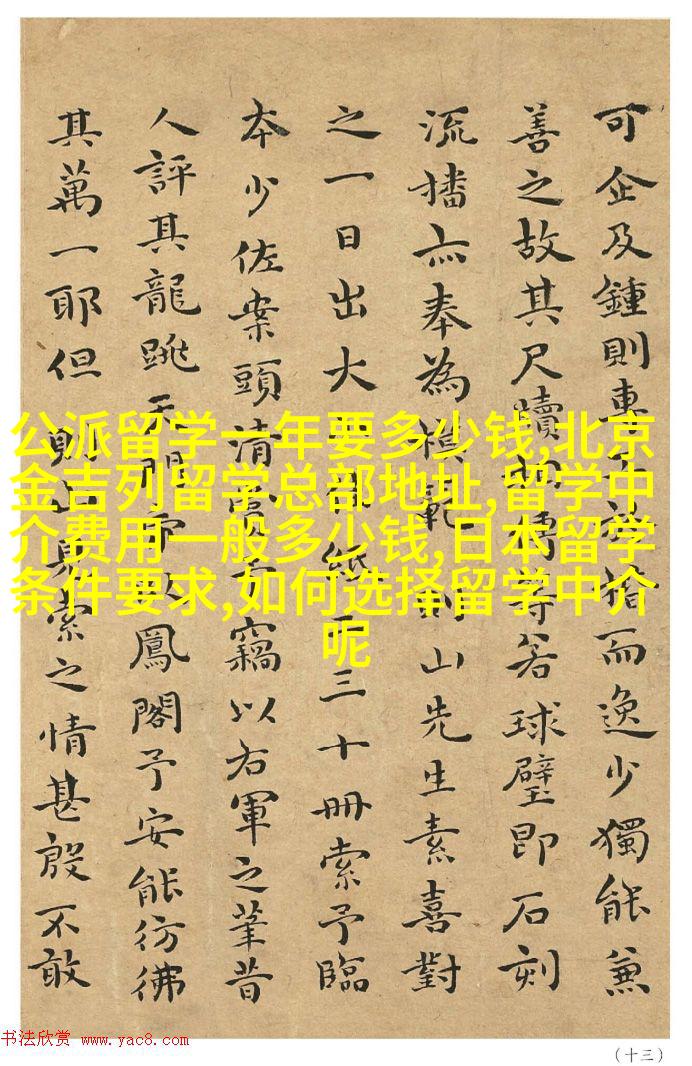 可企及鍾則專工於楷而逸少獨能兼
善之故其尺牘扎摶等若球璧即石刻
流播亦奉為模範則山先生素喜對
之一日出大 部紙三三十冊索予臨
本少佐案頭清 云竊以右軍之筆昔
人評其龍跳天門 臥鳳閣予安能彷彿
其萬一耶但 則山見索之情甚殷不敢
公派留学一年要多少钱,北京
金吉列留学总部地址,留学中
介费用一般多少钱,日本留学
条件要求,如何选择留学中介
呢
书法欣赏 www.yac8.com
(十三)